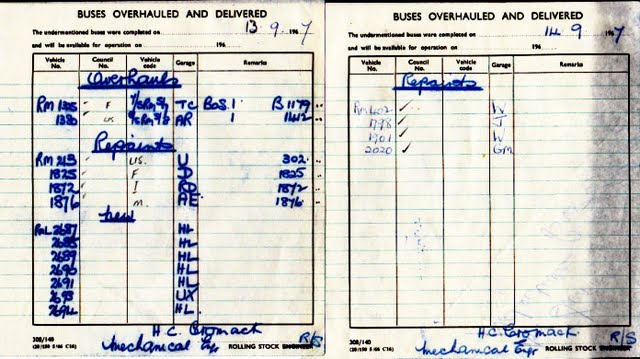 BUSES OVERHAULED AND DELIVERED
The undermentioned buses were completed on 13 . 9 . 196 7
and will be available for operation on 196
Vehicle No. Council No. Vehicle code Garage Remarks
Overhauls
F TC BOS. 1 B 1179
1380 AR 1 1412
Repaints
RM 213 US. U 302
1825 F D 1825
1872 I RD 1872
1876 m. AE 1876
New
RML 2687 HL
2688 HL
2689 HL
2690 HL
2691 HL
2693 UX
2694 HL.
H.C. Cromack
Mechanical Egr
ROLLING STOCK ENGINEER R/S
308/140
(20/150 5/66 C16)
BUSES OVERHAULED AND DELIVERED
The undermentioned buses were completed on 14 9 196 7
and will be available for operation on 196
Vehicle No. Council No. Vehicle code Garage Remarks
Repaints
RM 602 ✓ W
1798 ✓ J
1901 ✓ W
2020 ✓ GM
H.C. Cromack
Mechanical Egr
ROLLING STOCK ENGINEER R/S
308/140
(20/150 5/66 C16)